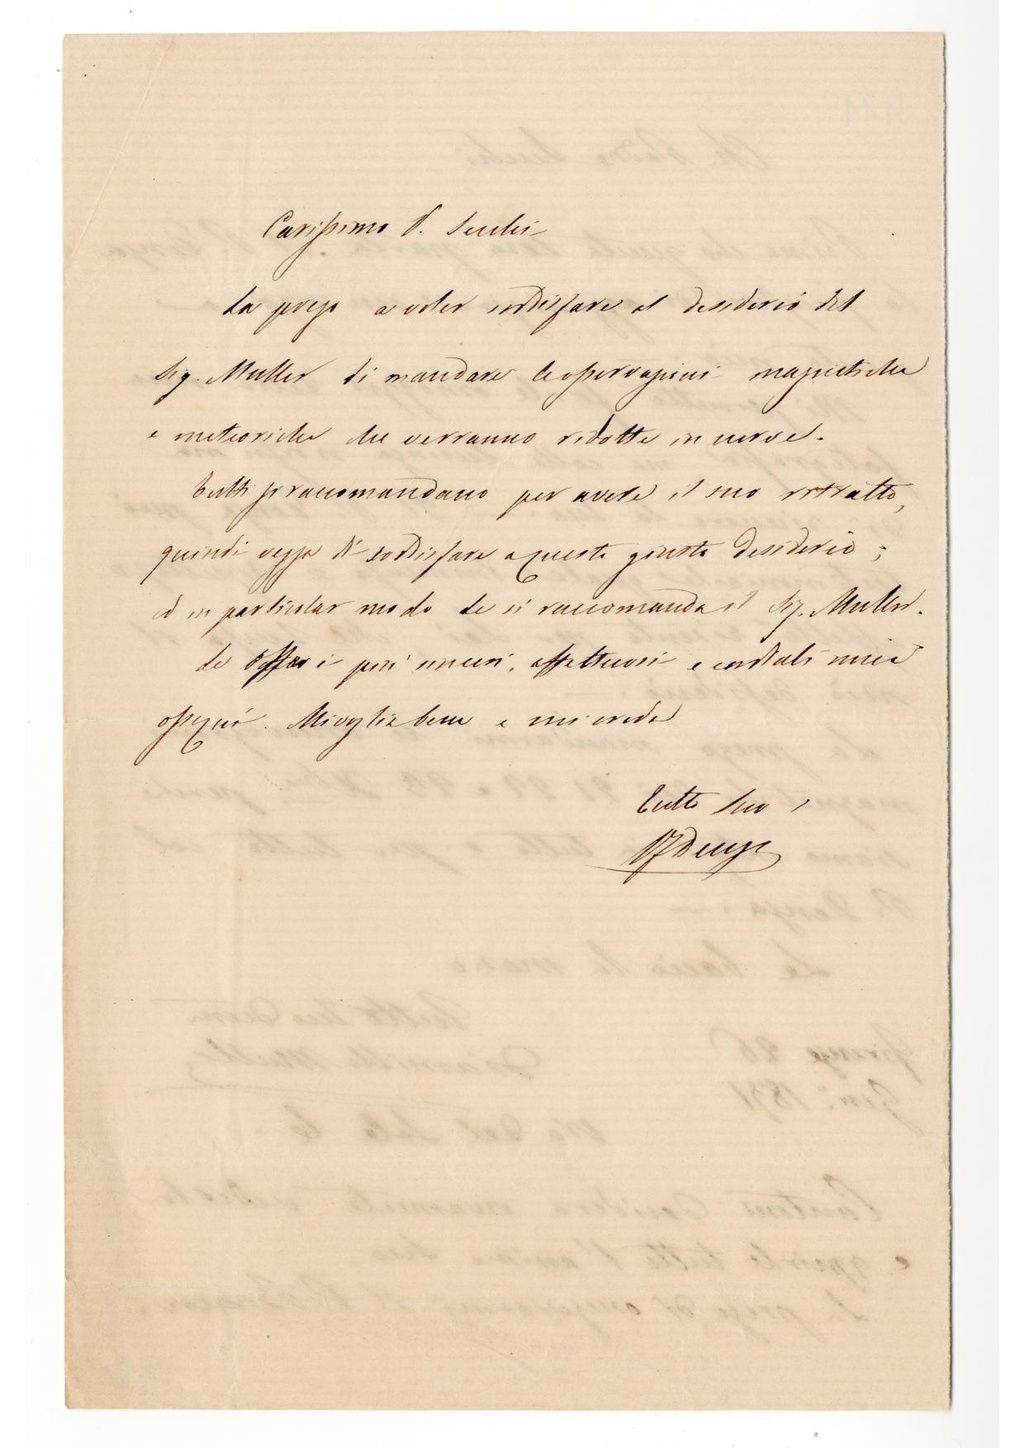 Carissimo P. Secchi
La prego a voler soddisfare al desiderio del
Sig. Muller di mandare le osservazioni magnetiche
e meteoriche che verranno ridotte in curve.
Tutti si raccomandano per avere il suo ritratto,
quindi vegga di soddisfare a questo giusto desiderio;
ed in particolar modo le si raccomanda il Sig. Muller.
Le offro i più sinceri, affettuosi e cordiali miei
ossequi. Mi voglia bene e mi creda
Tutto Suo
P. F. Denza